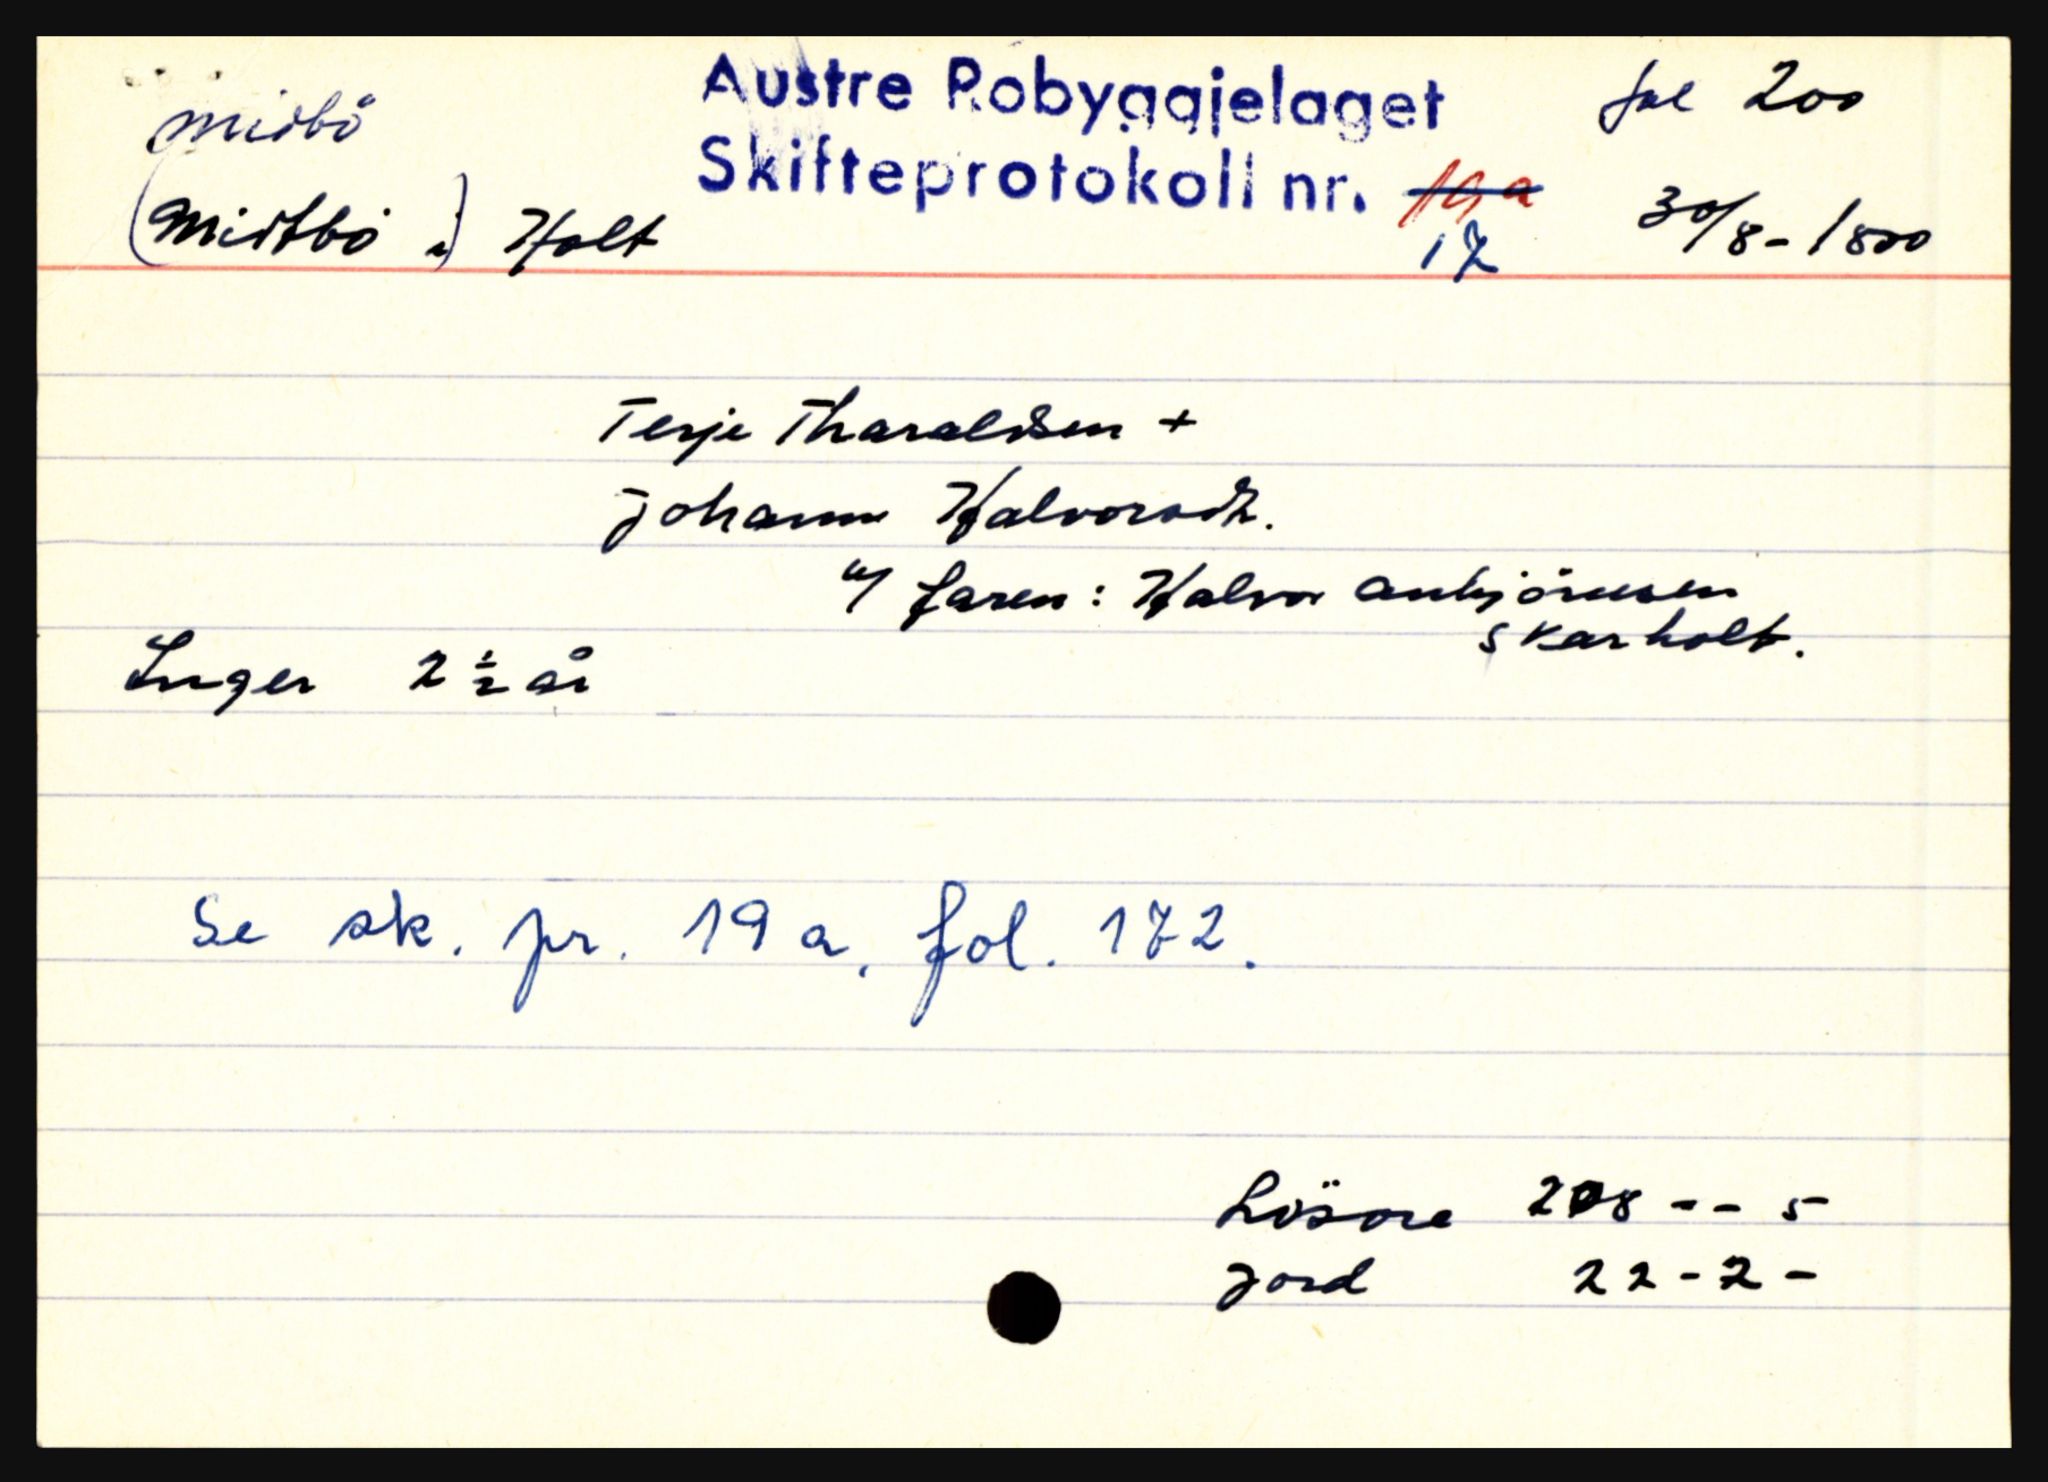 Midbö
Austre Robyggjelaget
fol 200
Skifteprotokoll nr. 19a
(Midtbö i) Holt
17
30/8-1800
Terje Tharaldsen +
Johanne Halvorsdt.
m/ faren: Halvor Anbjörnsen
Skarholt.
Inger 2 1/2 år
Se sk. pr. 19a, fol. 172.
Lösöre 208 -- 5
Jord 22-2-